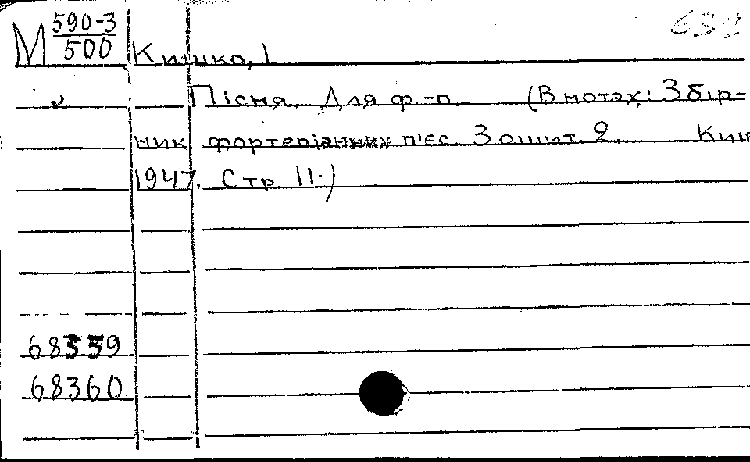 М 590-3
500
Кишко, І
639
Пісня. Для ф.-п. (В нотах: Збір-
ник фортепіанних п'єс. Зошит 2. Киї
1947. Стр. 11.)
68359
68360